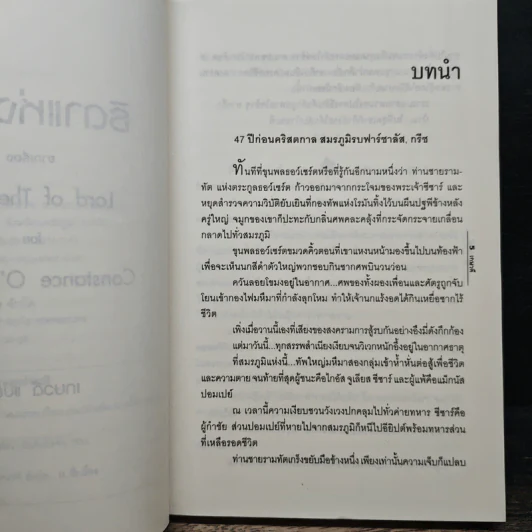 บทนำ
47 ปีก่อนคริสตกาล สมรภูมิรบฟาร์ซาลัส, กรีซ
ทันทีที่ขุนพลธอว์เซร์ตหรือที่รู้กันอีกนามหนึ่งว่า ท่านชายราม-
ทัต แห่งตระกูลธอว์เซร์ต ก้าวออกมาจากกระโจมของพระเจ้าซีซาร์ และ
หยุดสำรวจความวิบัติยับเยินที่กองทัพแห่งโรมันทิ้งไว้บนผืนปฐพีข้างหลัง
ครู่ใหญ่ จมูกของเขาก็ปะทะกับกลิ่นศพคละคลุ้งที่กระจัดกระจายเกลื่อน
กลาดไปทั่วสมรภูมิ
ขุนพลธอว์เซร์ตขมวดคิ้วตอนที่เขาแหงนหน้ามองขึ้นไปบนท้องฟ้า
เพื่อจะเห็นนกสีดำตัวใหญ่พวกชอบกินซากศพบินวนว่อน
ควันลอยโขมงอยู่ในอากาศ...ศพของทั้งผองเพื่อนและศัตรูถูกจับ
โยนเข้ากองไฟมหึมาที่กำลังลุกโหม ทำให้เจ้านกแร้งอดได้กินเหยื่อซากไร้
ชีวิต
เพิ่งเมื่อวานนี้เองที่เสียงของสงครามการสู้รบกันอย่างอึงมี่ดังกึกก้อง
แต่มาวันนี้...ทุกสรรพสำเนียงเงียบจนวิเวกหนักอึ้งอยู่ในอากาศธาตุ
ที่สมรภูมิแห่งนี้...ทัพใหญ่มหึมาสองกลุ่มเข้าห้ำหั่นต่อสู้เพื่อชีวิต
และความตาย จนท้ายที่สุดผู้ชนะคือไกอัส จูเลียส ซีซาร์ และผู้แพ้คือแม็กนัส
ปอมเปย์
ณ เวลานี้ความเงียบชวนวังเวงปกคลุมไปทั่วค่ายทหาร ซีซาร์คือ
ผู้กำชัย ส่วนปอมเปย์ที่หายไปจากสมรภูมิก็หนีไปอียิปต์พร้อมทหารส่วน
ที่เหลือรอดชีวิต
ท่านชายรามทัตเกร็งขยับมือข้างหนึ่ง เพียงเท่านั้นความเจ็บก็แปลบ
5
เกษวดี